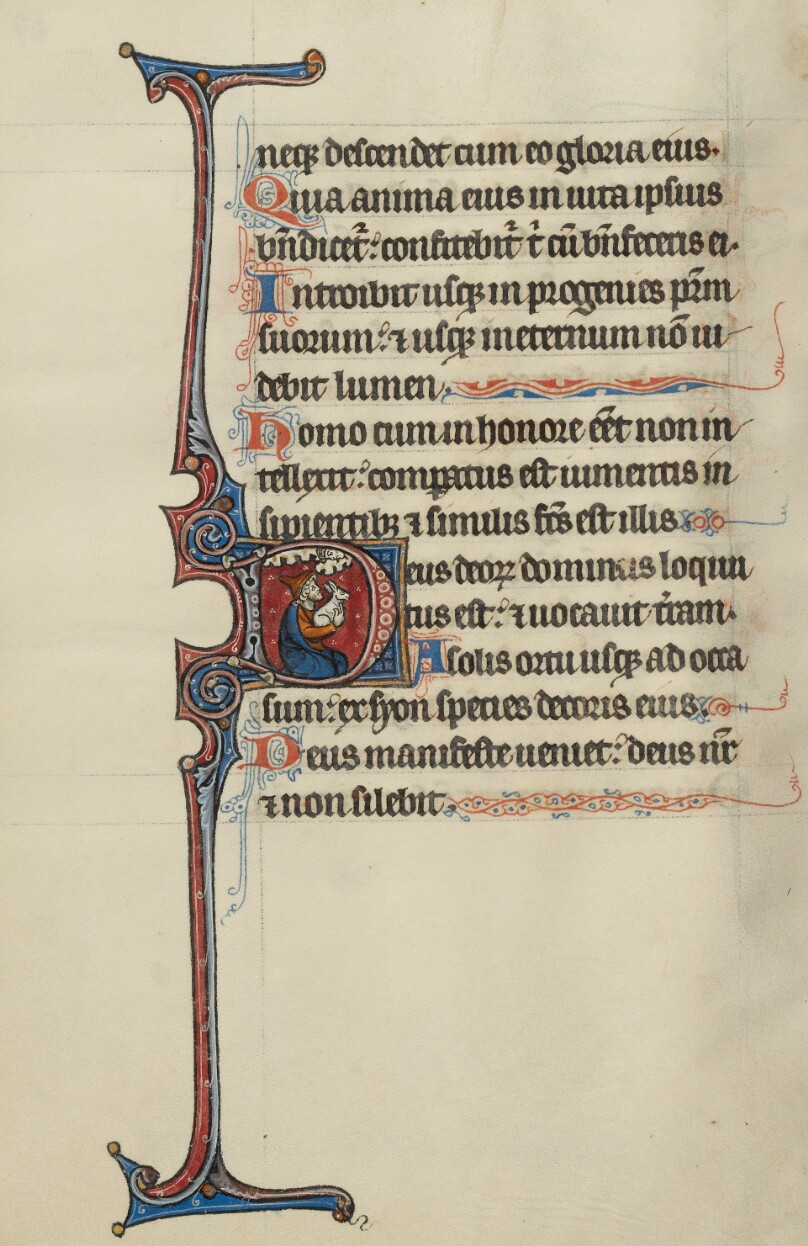 neq; descendet cum eo gloria eius.
Quia anima eius in uita ipsius
bn̄dicet᷑: confitebit᷑ t̉ cū bn̄feceris ei.
Introibit usq; in progenies pr̄m
suorum: ⁊ usq; in eternum nō ui
debit lumen.
Homo cum in honore eēt non in
tellexit: comꝑatus est iumentis in
sipientib; ⁊ similis fc̄s est illis
Deus deoꝝ dominus loqu
tus est: ⁊ uocauit t̉ram.
A solis ortu usq; ad occa
sum: ex syon species decoris eius.
Deus manifeste ueniet: deus nr̄
⁊ non silebit.